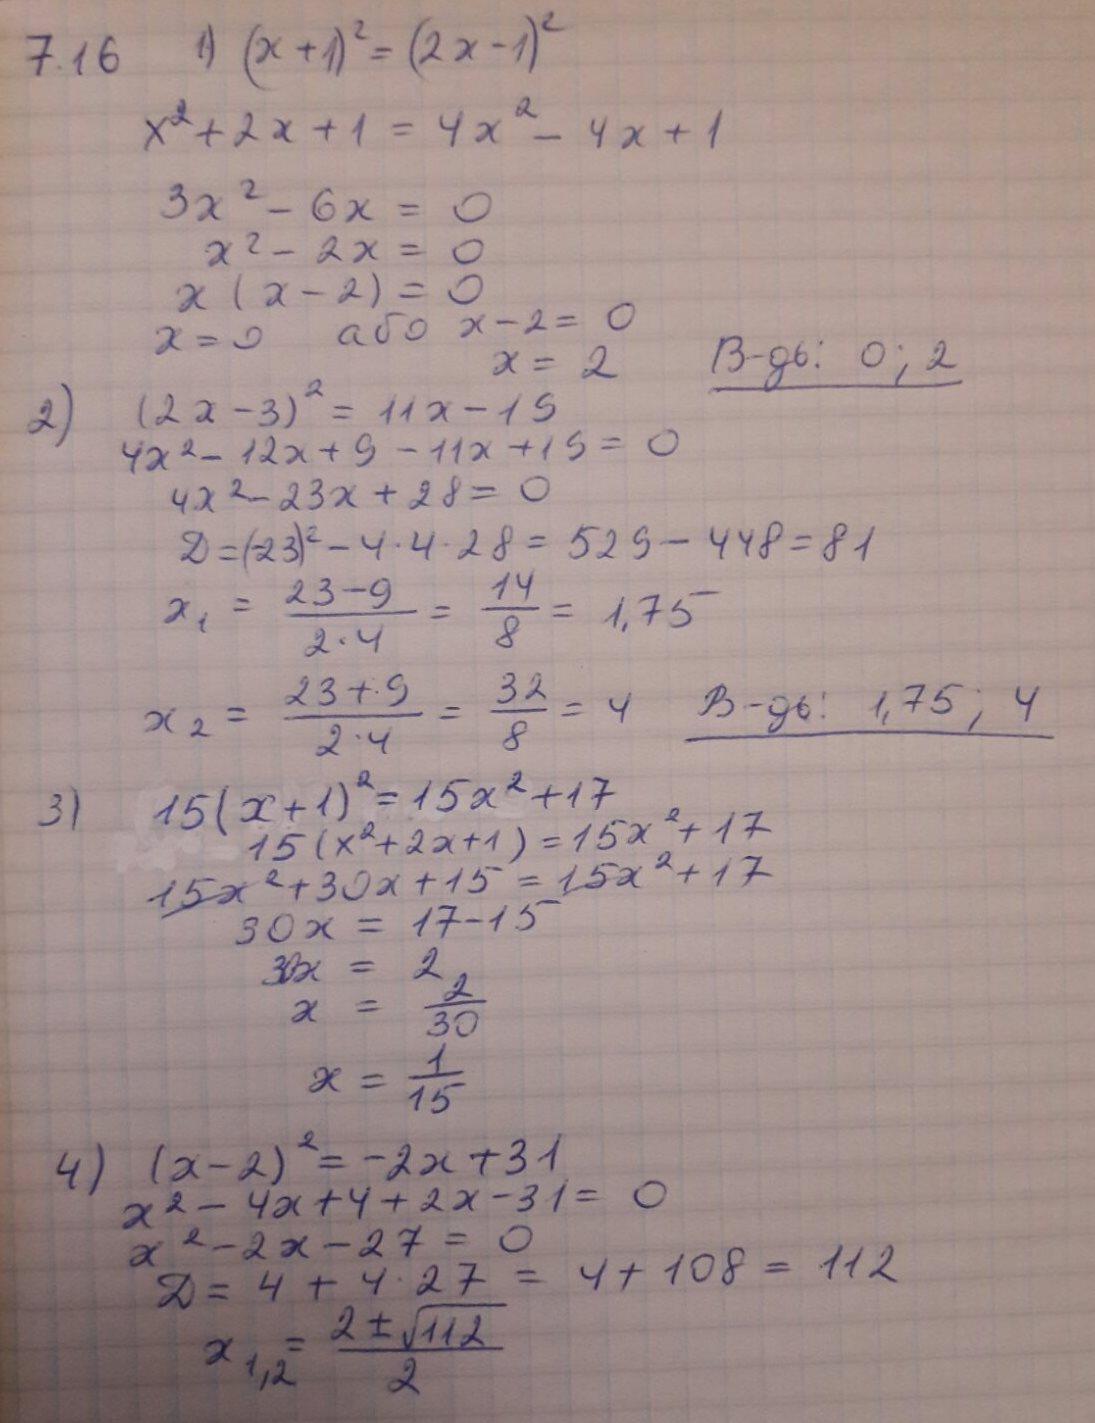 7.16 1) (x+1)² = (2x-1)²
x² + 2x + 1 = 4x² - 4x + 1
3x² - 6x = 0
x² - 2x = 0
x(x-2) = 0
x = 0 або x-2 = 0
x = 2 В-дь: 0; 2
2) (2x-3)² = 11x - 19
4x² - 12x + 9 - 11x + 19 = 0
4x² - 23x + 28 = 0
D = (-23)² - 4·4·28 = 529 - 448 = 81
x₁ = (23-9)/(2·4) = 14/8 = 1,75
x₂ = (23+9)/(2·4) = 32/8 = 4 В-дь: 1,75; 4
3) 15(x+1)² = 15x² + 17
15(x² + 2x + 1) = 15x² + 17
15x² + 30x + 15 = 15x² + 17
30x = 17-15
30x = 2
x = 2/30
x = 1/15
4) (x-2)² = -2x + 31
x² - 4x + 4 + 2x - 31 = 0
x² - 2x - 27 = 0
D = 4 + 4·27 = 4 + 108 = 112
x₁,₂ = (2±√112)/2